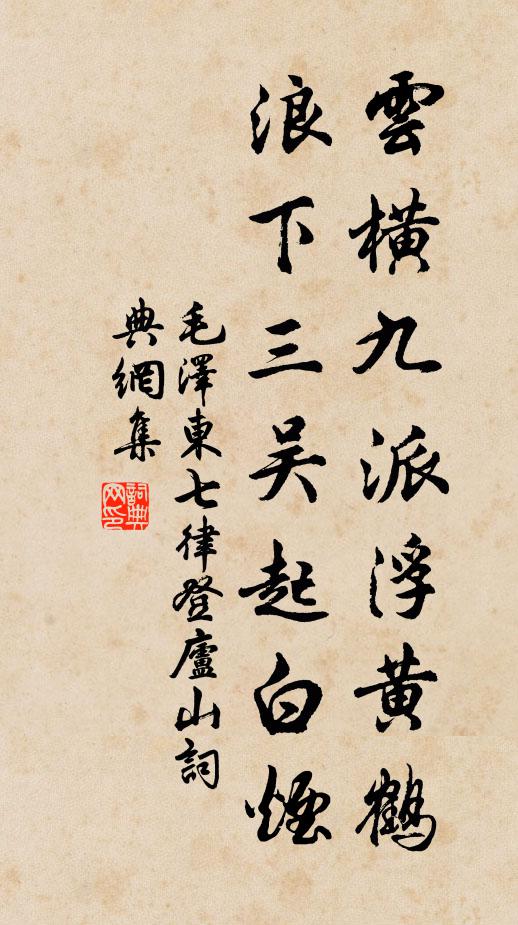 雲橫九派浮黃鶴
浪下三吴起白煙
毛澤東七律登廬山詞
典網集
詞典网印